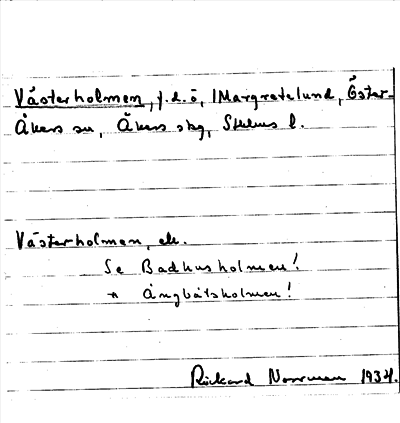 Västerholmen, f.d. ö, Margretelund, Öster-
Åkers sn, Åkers skg, Sthlms l.
Västerholmen, ell.
Se Badhusholmen!
" Ångbåtsholmen!
Rickard Norrman 1934.